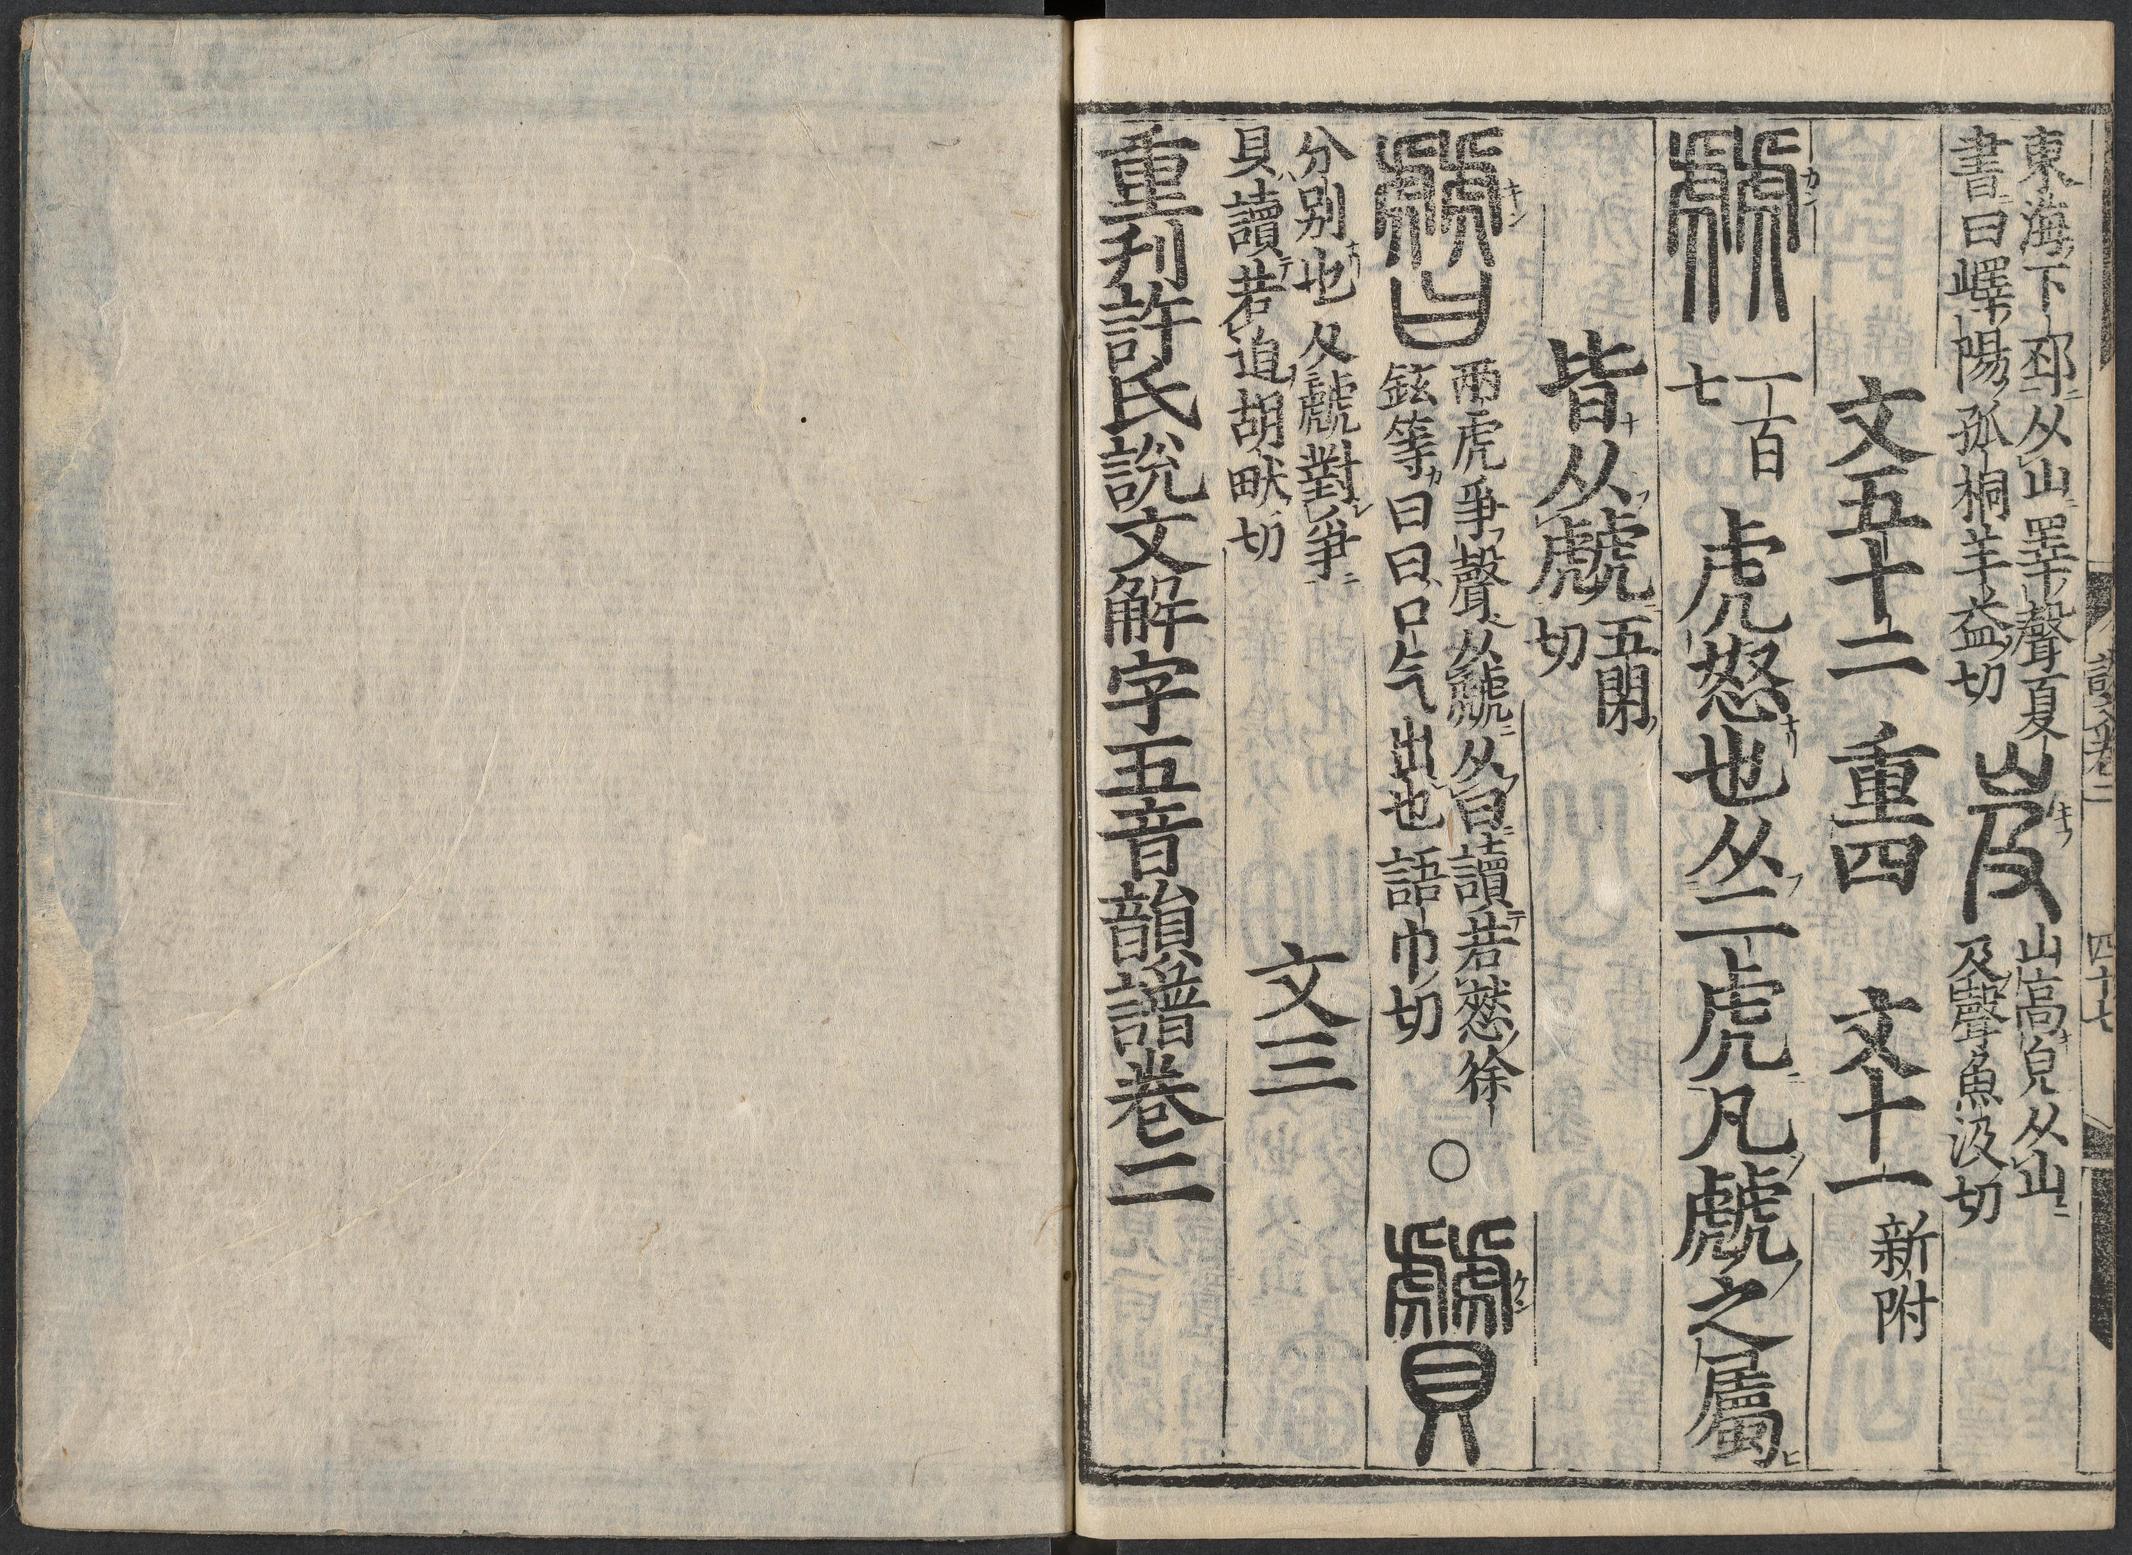 東海下邳从山睪聲夏
書曰嶧陽孤桐羊益切
岌
山高皃从山
及聲魚汲切
文五十二　重四　文十一 新附
虤 カン
一百
七
虎怒也从二虎凡虤之屬
皆从虤 五閑
切
𧇽 キン
兩虎爭聲从虤从曰讀若憖徐
鉉等曰曰口气出也語巾切
○
贙 ケン
分別也从虤對爭
貝讀若迴胡畎切
文三
重刊許氏說文解字五音韻譜卷二
說文卷二
四十七